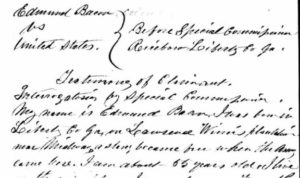 Edmund Bacon
vs
United States.
Before Special Commissioner
Riceboro Liberty Co Ga.
Testimony of Claimant.
Interrogatories by Special Commissioner
My name is Edmund Bacon, I was born in
Liberty Co Ga, on Lawrence Winn's plantation
near Midway, a slave, became free when the Army
came here. I am about 65 years old. I live